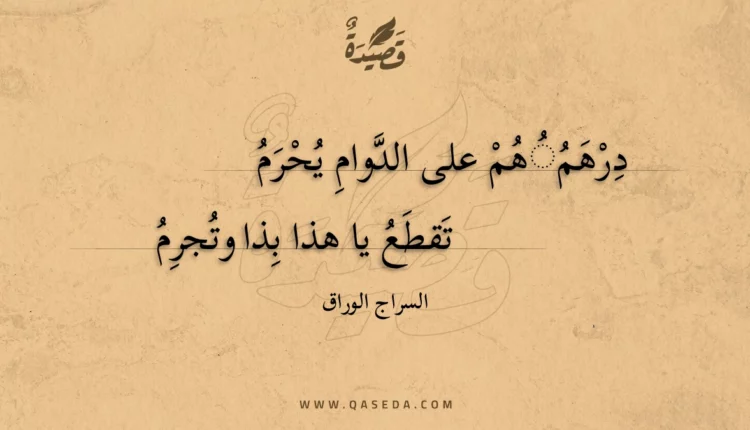 قَصِيْدَةٌ
دِرْهَمُ ُهُمْ على الدَّوامِ يُحْرَمُ
تَقطَعُ يا هذا بِذا وتُجرِمُ
السراج الوراق
WWW.QASEDA.COM